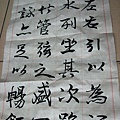 左右引以為
水列坐其次
竹管弦之盛一
詠亦足以暢敘